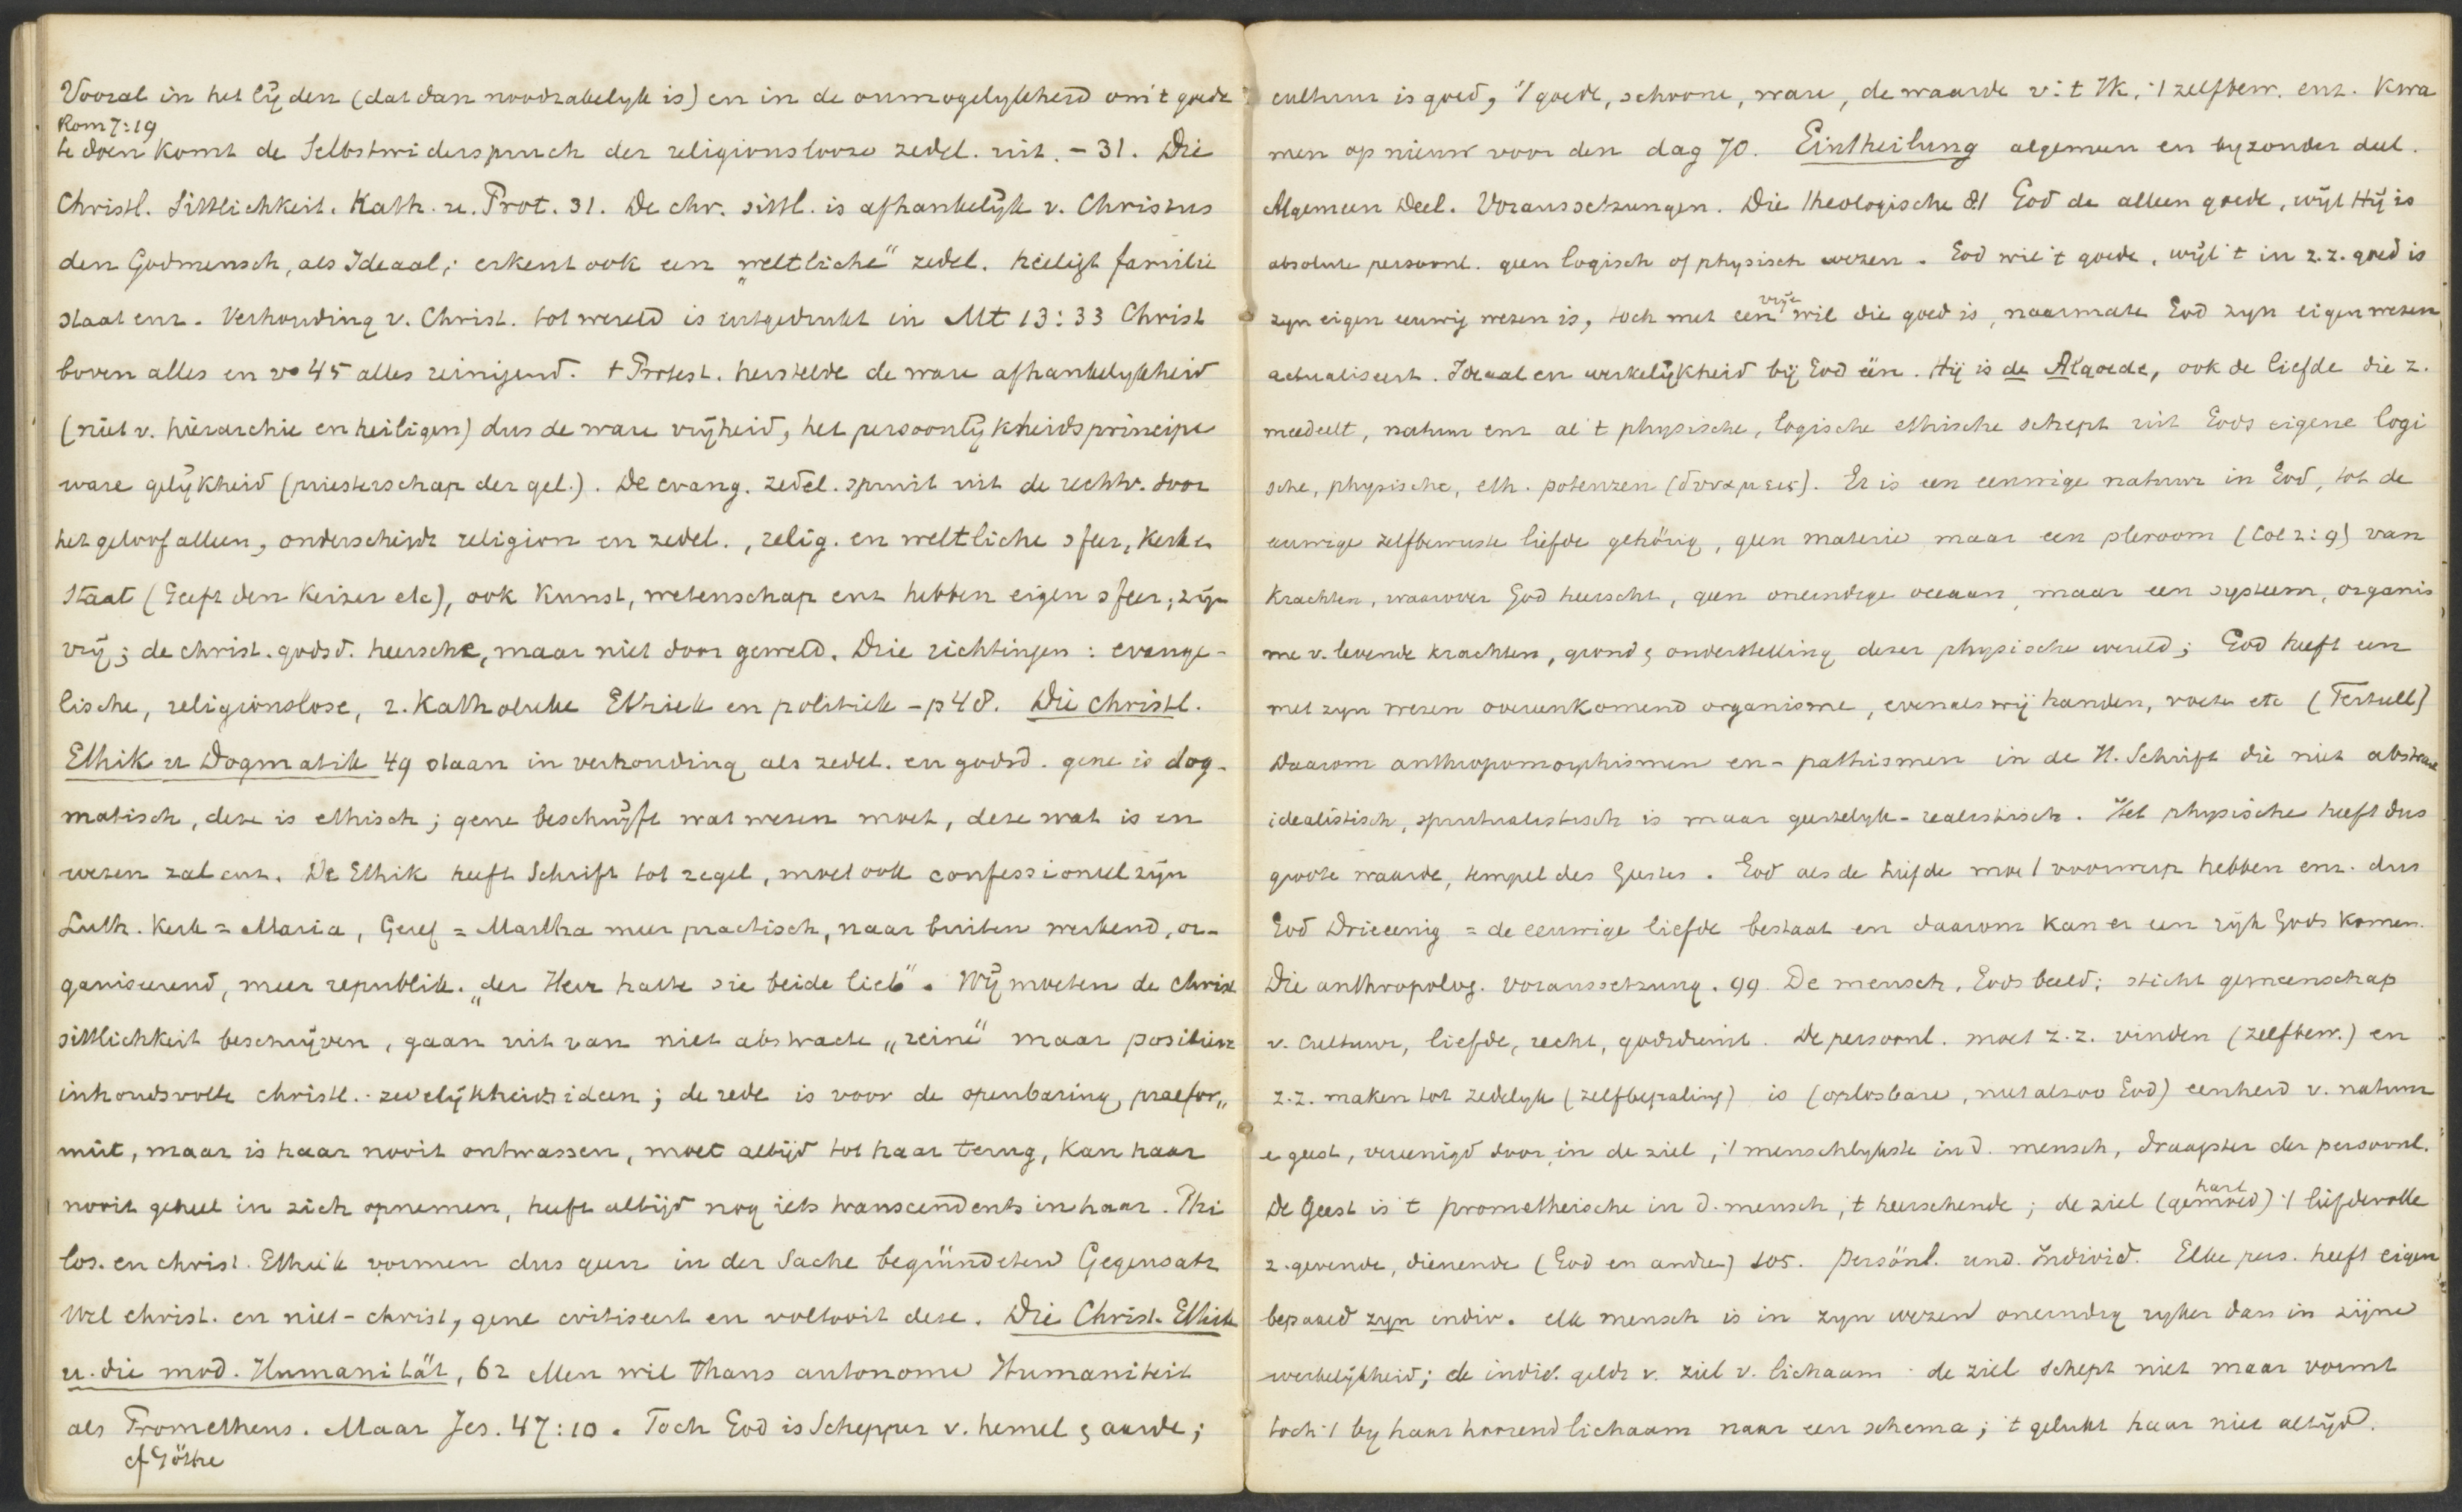 Vooral in het lijden (dat dan noodzakelyk is) en in de onmogelykheid om 't goede
Rom 7:19
te doen komt de Selbstwiderspruch der religionslooze zedel. uit. - 31. Die
Christl. Sittlichkeit. Kath. u. Prot. 31. De chr. sittl. is afhankelijk v. Christus
den Godmensch, als Ideaal; erkent ook een "weltliche" zedel. heiligt familie
staat enz. Verhouding v. Christ. tot wereld is uitgedrukt in Mt 13:33 Christ
boven alles en vs 45 alles reinigend. 't Protest. herstelde de ware afhankelykheid
(niet v. hierarchie en heiligen) dus de ware vrijheid, het persoonlijkheidsprincipe
ware gelijkheid (priesterschap der gel.). De evang. zedel. spruit uit de rechtv. door
het geloof alleen, onderscheidt religion en zedel., relig. en weltliche sfeer, kerk en
Staat (Geeft den Keizer etc), ook Kunst, wetenschap enz hebben eigen sfeer; zijn
vrij; de christ. godsd. heersche, maar niet door geweld. Drie richtingen: evange-
lische, religionslose, r. Katholieke Ethiek en politiek - p 48. Die christl.
Ethik u Dogmatik 49 staan in verhouding als zedel. en godsd. gene is dog-
matisch, deze is ethisch; gene beschrijft wat wezen moet, deze wat is en
wezen zal enz. De Ethik heeft Schrift tot regel, moet ook confessioneel zijn
Luth. Kerk = Maria, Geref = Martha meer practisch, naar buiten werkend, or-
ganiseerend, meer republik. "der Herr hatte sie beide lieb". Wij moeten de christ
sittlichkeit beschrijven, gaan uit van niet abstracte "reine" maar positieve
inhoudsvolle christl. zedelijkheidsideen; de rede is voor de openbaring, praefor„
mirt, maar is haar nooit ontwassen, moet altijd tot haar terug, kan haar
nooit geheel in zich opnemen, heeft altijd nog iets transcendents in haar. Phi
los. en christ. Ethiek vormen dus geen in der Sache begründeten Gegensatz
Wel christ. en niet-christ, gene critiseert en voltooit deze. Die Christ. Ethik
u. die mod. Humanität, 62 Men wil thans autonome Humaniteit
als Prometheus. Maar Jes. 47:10. Toch God is Schepper v. hemel & aarde;
cf Göthe
cultuur is goed, 't goede, schoone, ware, de waarde v. 't Ik, 't zelfbew. enz. Kwa
men op nieuw voor den dag 70. Eintheilung algemeen en byzonder deel.
Algemeen Deel. Voraussetzungen. Die theologische 81 God de alleen goede, wijl Hij is
absolute persoonl. geen logisch of physisch wezen. God wil 't goede, wijl 't in z.z. goed is
zyn eigen eeuwig wezen is, toch met een vrije wil die goed is, naarmate God zyn eigen wezen
actualiseert. Ideaal en werkelijkheid bij God één. Hij is de Algoede, ook de liefde die z.
meedeelt, natuur enz al 't physische, logische ethische schept uit Gods eigene logi
sche, physische, eth. potenzen (δυναμεις). Er is een eeuwige natuur in God, tot de
eeuwige zelfbewuste liefde gehörig, geen materie maar een pleroom (Col 2:9) van
krachten, waarover God heerscht, geen oneindige oceaan, maar een systeem, organis
me v. levende krachten, grond & onderstelling dezer physische wereld; God heeft een
met zyn wezen overeenkomend organisme, evenals wij handen, voeten etc (Tertull)
Daarom anthropomorphismen en -pathismen in de H. Schrift die niet abstract
idealistisch, spiritualistisch is maar geestelyk-realistisch. Het physische heeft dus
groote waarde, tempel des Geestes. God als de liefde moet voorwerp hebben enz. dus
God Drieeenig = de eeuwige liefde bestaat en daarom kan er een rijk Gods komen.
Die anthropolog. Voraussetzung. 99. De mensch, Gods beeld; sticht gemeenschap
v. Cultuur, liefde, recht, godsdienst. De persoonl. moet z.z. vinden (zelfbew.) en
z.z. maken tot zedelyk (zelfbepaling) is (oplosbare, niet alzoo God) eenheid v. natuur
e geest, vereenigd door, in de ziel, 't menschlykste in d. mensch, draagster der persoonl.
De Geest is 't prometheische in d. mensch, 't heerschende; de ziel (gemoed) hart 't liefdevolle
z. gevende, dienende (God en andre) 105. Persönl. und Individ. Elke pers. heeft eigen
bepaald zyn indiv. elk mensch is in zyn wezen oneindig ryker dan in zijne
werkelijkheid; de individ. geldt v. ziel v. lichaam de ziel schept niet maar vormt
toch 't by haar hoorend lichaam naar een schema; 't gelukt haar niet altijd.